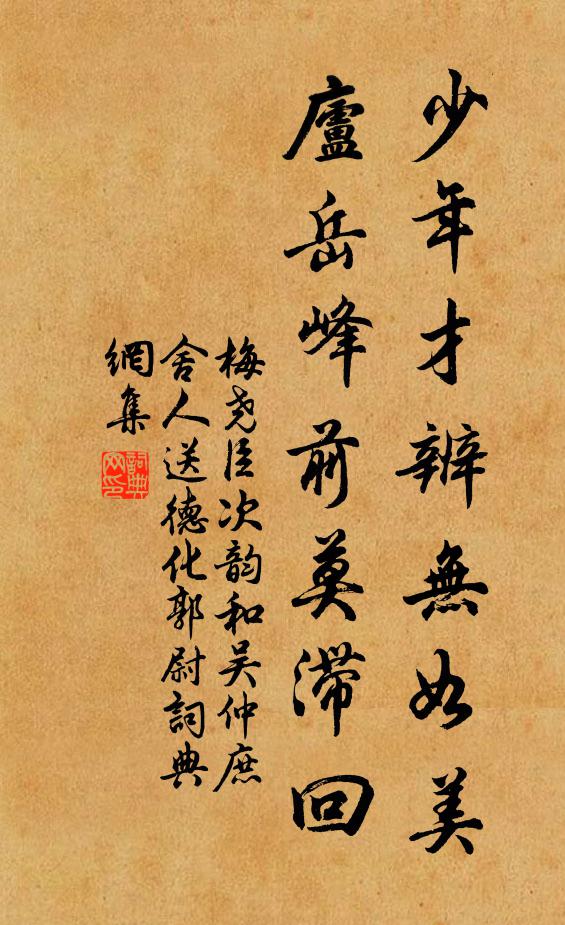 少年才辨無如美
廬岳峰前莫滯回
梅尧臣次韵和吴仲庶
舍人送德化郭尉詞典
網集
詞典
网印